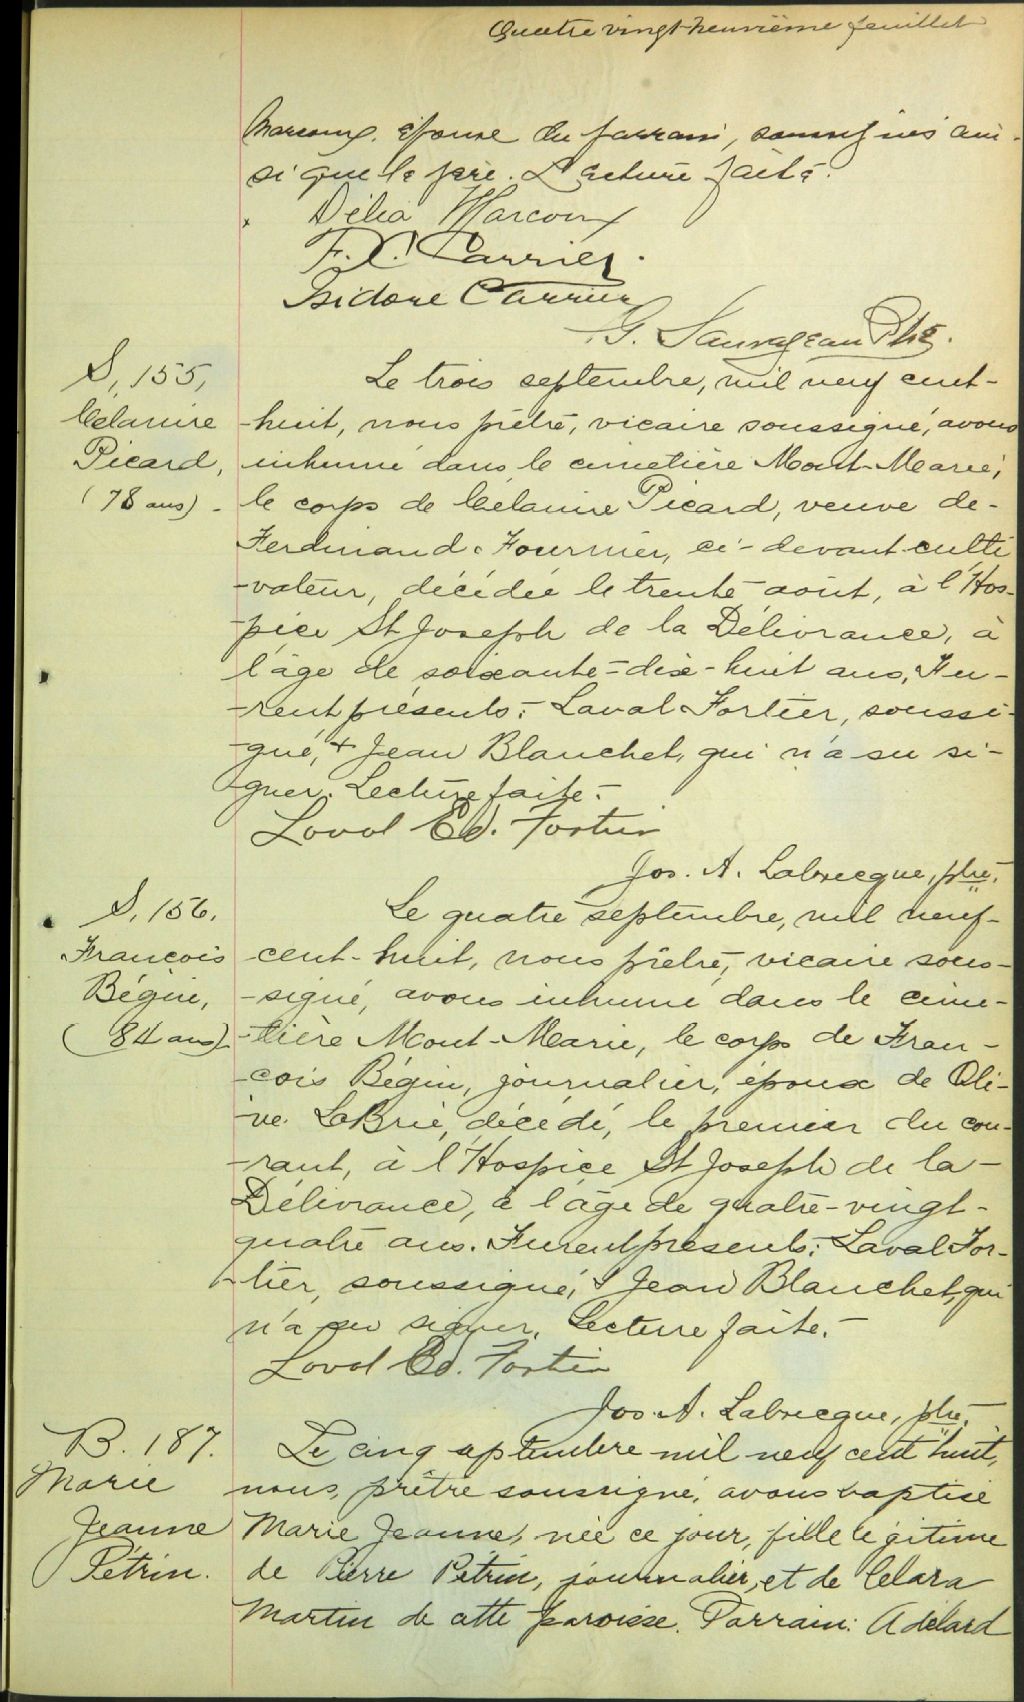 Quatre vingt neuvième feuillet
Marcoux épouse du parrain, soussignés ain-
si que le père. Lecture faite.
Délia Marcoux
F. X. Carrier
Isidore Carrier
G. Sauvageau Ptre.
S, 155,
Célanire
Picard,
(78 ans)
Le trois septembre, mil neuf cent-
-huit, nous prêtre, vicaire soussigné, avons
inhumé dans le cimetière Mont-Marie,
le corps de Célanire Picard, veuve de-
Ferdinand Fournier, ci-devant culti
-vateur, décédée le trente août, à l'Hos-
-pice St Joseph de la Délivrance, à
l'âge de soixante-dix-huit ans, Fu-
-rent présents: Laval Fortier, soussi-
-gné, & Jean Blanchet, qui n'a su si-
-gner. Lecture faite.-
Laval Ed. Fortier
Jos. A. Labrecque, ptre.
S, 156,
François
Bégin,
(84 ans)
Le quatre septembre, mil neuf-
-cent-huit, nous prêtre, vicaire sous-
-signé, avons inhumé dans le cime-
-tière Mont-Marie, le corps de Fran-
-çois Bégin, journalier, époux de Oli-
-ve LaBrie, décédé, le premier du cou-
-rant, à l'Hospice St Joseph de la-
Délivrance, à l'âge de quatre-vingt-
quatre ans. Furent présents: Laval For-
-tier, soussigné, & Jean Blanchet, qui
n'a su signer. Lecture faite.-
Laval Ed. Fortier
Jos. A. Labrecque, ptre.
B. 187.
Marie
Jeanne
Pétrin.
Le cinq septembre mil neuf cent huit,
nous, prêtre soussigné, avons baptisé
Marie Jeanne, née ce jour, fille légitime
de Pierre Pétrin, journalier, et de Clara
Martin de cette paroisse. Parrain: Adélard